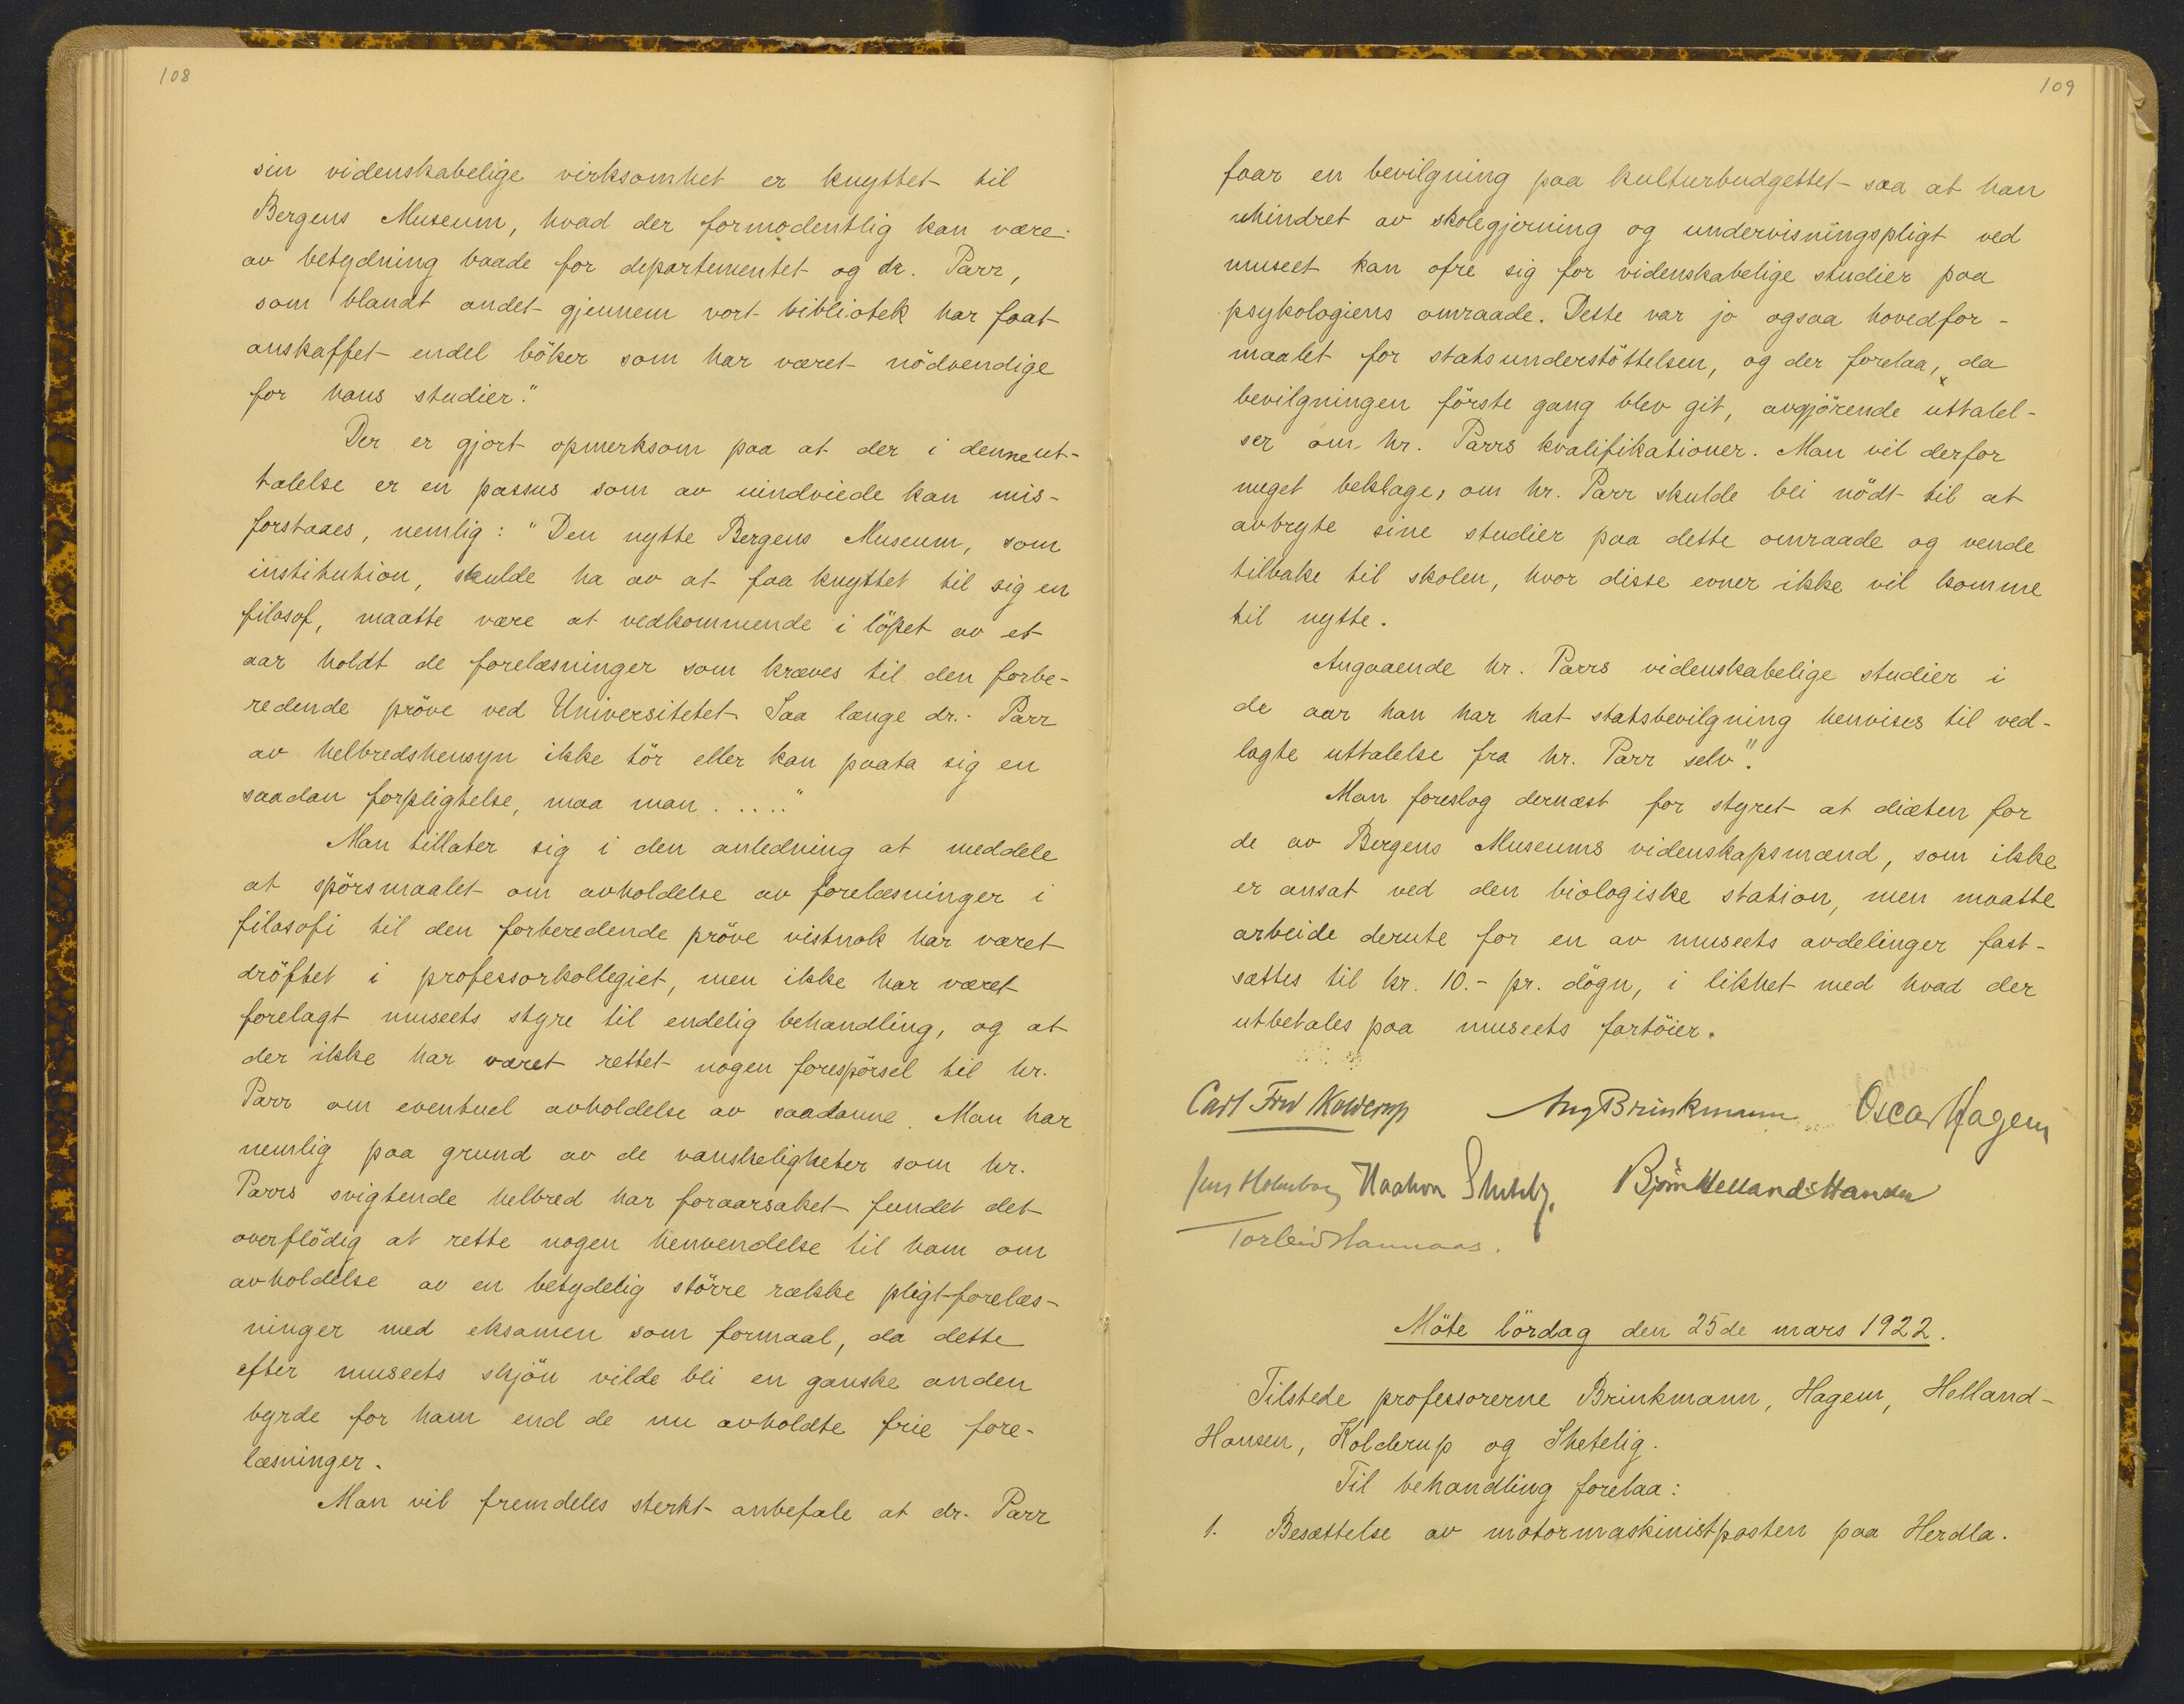 108
sin videnskabelige virksomhet er knyttet til
Bergens Museum, hvad der formodentlig kan være
av betydning baade for departementet og dr. Parr,
som blandt andet gjennem vort bibliotek har faat
anskaffet endel böker som har været nödvendige
for hans studier."
Der er gjort opmerksom paa at der i denne ut-
talelse er en passus som av uindviede kan mis-
forstaaes, nemlig: "Den nytte Bergens Museum, som
institution, skulde ha av at faa knyttet til sig en
filosof, maatte være at vedkommende i löpet av et
aar holdt de forelæsninger som kræves til den forbe-
redende pröve ved Universitetet. Saa længe dr. Parr
av helbredshensyn ikke tör eller kan paata sig en
saadan forpligtelse, maa man ....."
Man tillater sig i den anledning at meddele
at spörsmaalet om avholdelse av forelæsninger i
filosofi til den forberedende pröve vistnok har været
dröftet i professorkollegiet, men ikke har været
forelagt museets styre til endelig behandling, og at
der ikke har været rettet nogen forespörsel til hr.
Parr om eventuel avholdelse av saadanne. Man har
nemlig paa grund av de vanskeligheter som hr.
Parrs svigtende helbred har foraarsaket fundet det
overflödig at rette nogen henvendelse til ham om
avholdelse av en betydelig större række pligt-forelæs-
ninger med eksamen som formaal, da dette
efter museets skjön vilde bli en ganske anden
byrde for ham end de nu avholdte frie fore-
læsninger.
Man vil fremdeles sterkt anbefale at dr. Parr
109
faar en bevilgning paa kulturbudgettet saa at han
uhindret av skolegjerning og undervisningspligt ved
museet kan ofre sig for videnskabelige studier paa
psykologiens omraade. Dette var jo ogsaa hovedfor-
maalet for statsunderstöttelsen, og der forelaa, da
bevilgningen förste gang blev git, avgjörende uttalel-
ser om hr. Parrs kvalifikationer. Man vil derfor
meget beklage, om hr. Parr skulde bli nödt til at
avbryte sine studier paa dette omraade og vende
tilbake til skolen, hvor disse evner ikke vil komme
til nytte.
Angaaende hr. Parrs videnskabelige studier i
de aar han har hat statsbevilgning henvises til ved-
lagte uttalelse fra hr. Parr selv".
Man foreslog dernæst for styret at diæten for
de av Bergens Museums videnskapsmænd, som ikke
er ansat ved den biologiske station, men maatte
arbeide derute for en av museets avdelinger fast-
sættes til kr. 10.- pr. dögn, i likhet med hvad der
utbetales paa museets fartöier.
Carl Fred Kolderup Aug Brinkmann Oscar Hagem
Jens Holmboe Haakon Shetelig. Bjørn Helland-Hansen
Torleiv Hannaas.
Möte lördag den 25de mars 1922.
Tilstede professorerne Brinkmann, Hagem, Helland-
Hansen, Kolderup og Shetelig.
Til behandling forelaa:
1. Besættelse av motormaskinistposten paa Herdla.